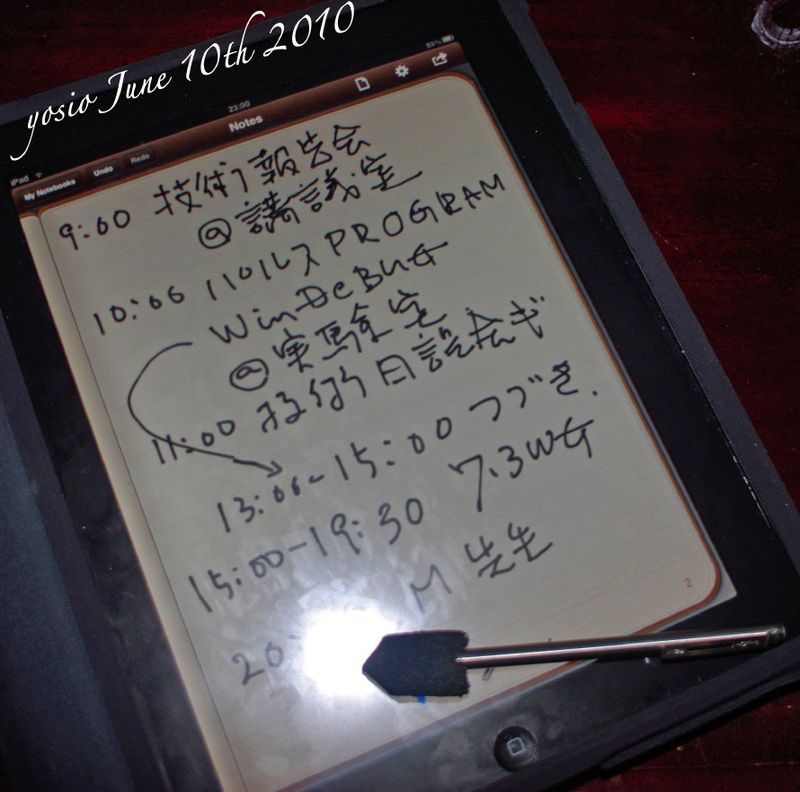 yosio June 10th 2010
iPad
23:00
83%
Notes
My Notebooks Undo Redo
9:00 技術報告会
@講議室
10:00 パルス PROGRAM
Win DeBUG
@実験室
11:00 技術
13:00-15:00 つづき.
15:00-19:30 7.3WG
20: M 先生
2